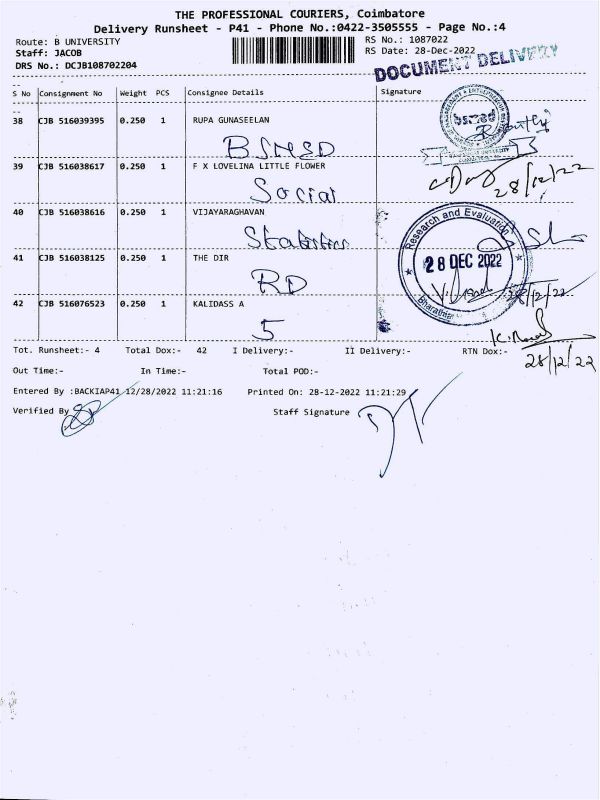 THE PROFESSIONAL COURIERS, Coimbatore
Delivery Runsheet - P41 - Phone No.:0422-3505555 - Page No.:4
Route: B UNIVERSITY RS No.: 1087022
Staff: JACOB RS Date: 28-Dec-2022
DRS No.: DCJB108702204
DOCUMENT DELIVERY
S No Consignment No Weight PCS Consignee Details Signature
38 CJB 516039395 0.250 1 RUPA GUNASEELAN
bsmed
BSMED
39 CJB 516038617 0.250 1 F X LOVELINA LITTLE FLOWER
Social
28/12/22
40 CJB 516038616 0.250 1 VIJAYARAGHAVAN
Statistics
Research and Evaluation
41 CJB 516038125 0.250 1 THE DIR
28 DEC 2022
RD
28/12/22
42 CJB 516076523 0.250 1 KALIDASS A
5
Tot. Runsheet:- 4 Total Dox:- 42 I Delivery:- II Delivery:- RTN Dox:-
28/12/22
Out Time:- In Time:- Total POD:-
Entered By :BACKIAP41 12/28/2022 11:21:16 Printed On: 28-12-2022 11:21:29
Verified By Staff Signature